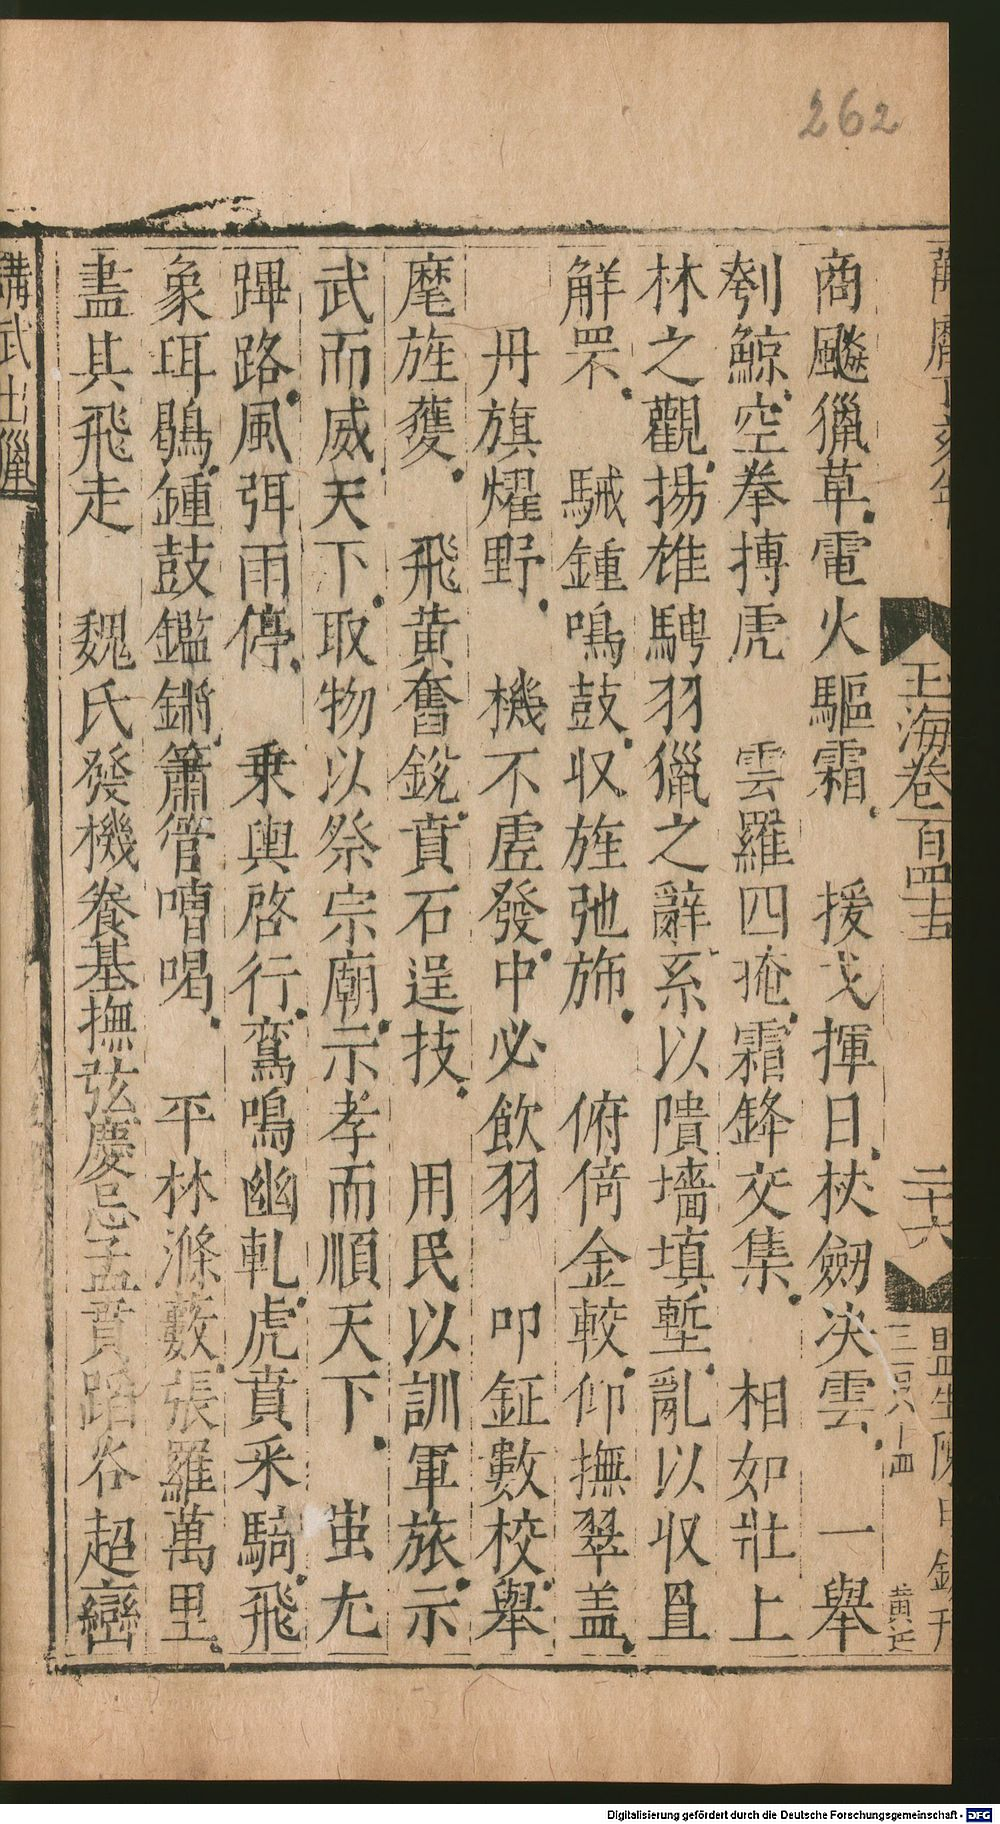 262
萬曆丁亥年
玉海卷一百四十五
二十六
商飈獵草電火驅霜 援戈揮日杖劒决雲 一舉
刳鯨空拳搏虎 雲羅四掩霜鋒交集 相如壯上
林之觀揚雄騁羽獵之辭系以隤墻填塹亂以收罝
觧罘 駴鍾鳴鼓収旌弛斾 俯倚金較仰撫翠盖
丹旗燿野 機不虛發中必飲羽 叩鉦數校舉
麾旌蒦 飛黄奮銳賁石逞技 用民以訓軍旅示
武而威天下取物以祭宗廟示孝而順天下 蚩尤
蹕路風弭雨停 乗輿啓行鸞鳴幽軋虎賁釆騎飛
象珥鶡鍾鼓鑑鏘簫管嘈喝 平林滌藪張羅萬里
盡其飛走 魏氏發機養基撫弦慶忌孟賁蹈谷超巒
講武出獵
Digitalisierung gefördert durch die Deutsche Forschungsgemeinschaft - DFG